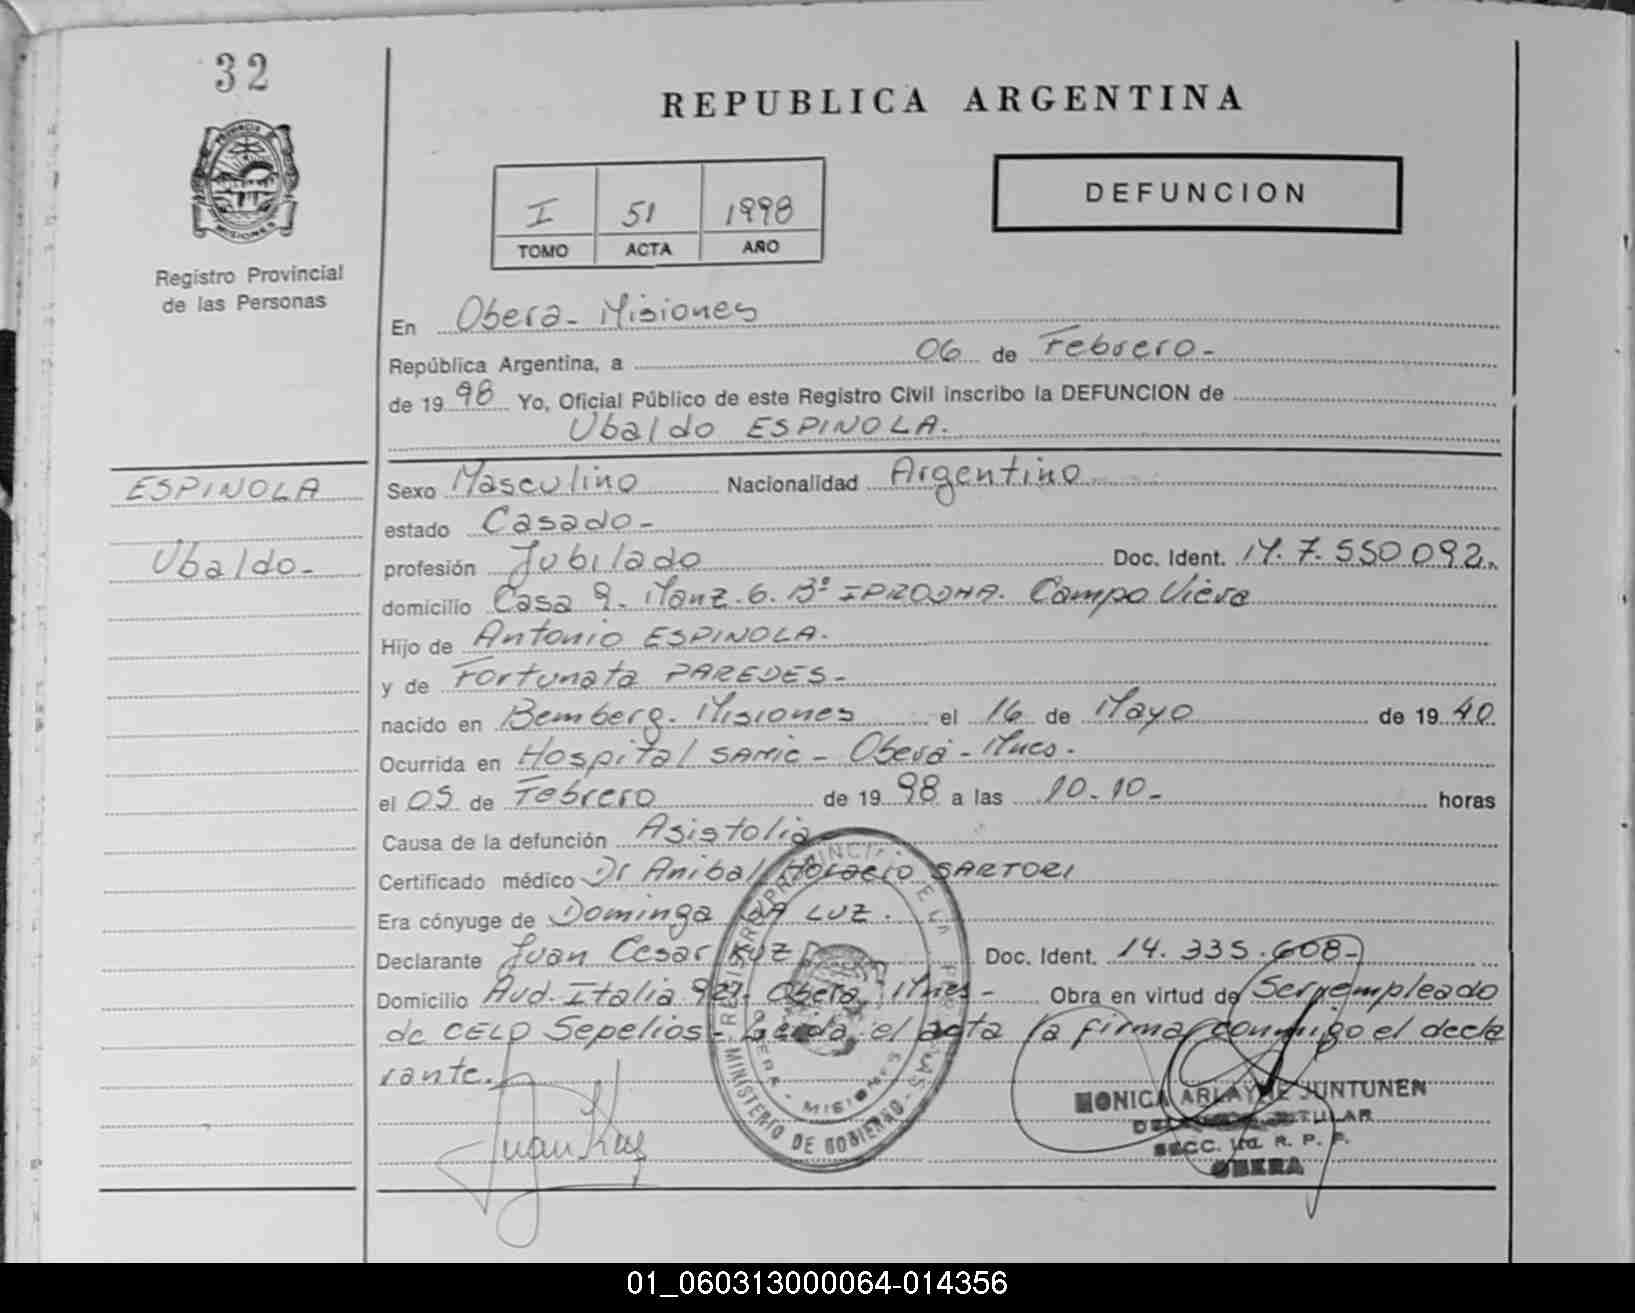 32
REPUBLICA ARGENTINA
PROVINCIA DE
MISIONES
I 51 1998
TOMO ACTA AÑO
DEFUNCION
Registro Provincial
de las Personas
En Obera - Misiones
República Argentina, a 06 de Febrero -
de 19 98 Yo, Oficial Público de este Registro Civil inscribo la DEFUNCION de
Ubaldo ESPINOLA.
ESPINOLA
Ubaldo -
Sexo Masculino Nacionalidad Argentino
estado Casado -
profesión Jubilado Doc. Ident. M. 7.550.092.
domicilio Casa 9. Manz. 6. Bº IPRODHA. Campo Viera
Hijo de Antonio ESPINOLA.
y de Fortunata PAREDES -
nacido en Bemberg. Misiones el 16 de Mayo de 19 40
Ocurrida en Hospital SAMIC - Oberá - Mnes.
el 05 de Febrero de 19 98 a las 10.10 - horas
Causa de la defunción Asistolia
Certificado médico Dr Anibal Horacio SARTORI
Era cónyuge de Dominga DA LUZ.
Declarante Juan Cesar KUZ Doc. Ident. 14.335.608 -
Domicilio Avd. Italia Obera, Mnes - Obra en virtud de Ser empleado
de CELO Sepelios - Leida el acta la firma conmigo el decla
rante.
MINISTERIO DE GOBIERNO
MISIONES
Juan Kuz
MONICA ARLAYNE JUNTUNEN
TITULAR
SECC. R. P. P.
OBERA
01_060313000064-014356